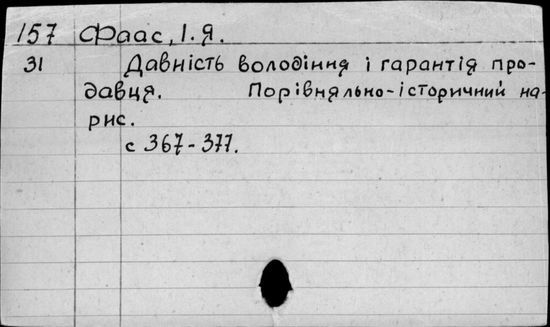 157 Фаас, І.Я.
31 Давність володіння і гарантія про-
давця. Порівняльно-історичний на-
рис.
с 367-377.